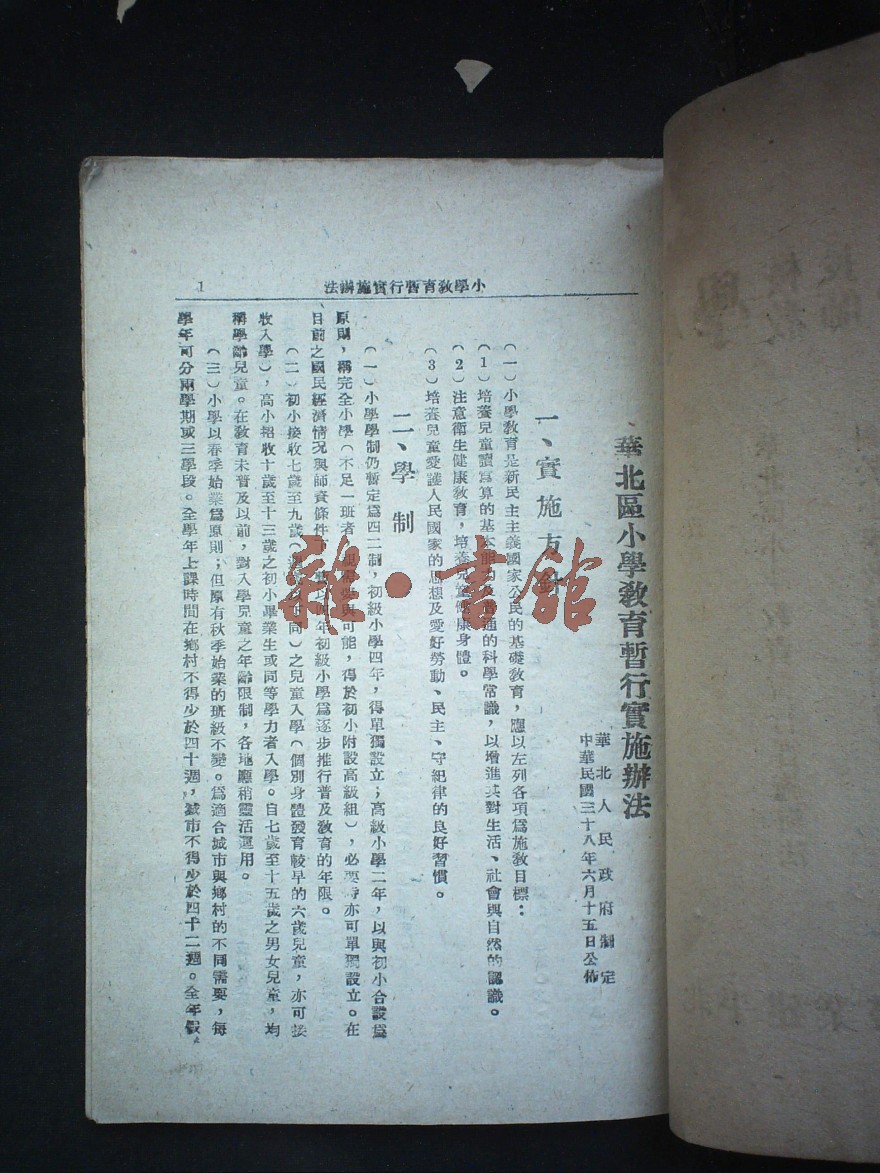 小學教育暫行實施辦法
1
華北區小學教育暫行實施辦法
華北人民政府制定
中華民國三十八年六月十五日公佈
一、實施方針
(一)小學教育是新民主主義國家公民的基礎教育,應以左列各項爲施教目標:
(1)培養兒童讀寫算的基本能力及普通的科學常識,以增進其對生活、社會與自然的認識。
(2)注意衛生健康教育,培養兒童健康身體。
(3)培養兒童愛護人民國家的思想及愛好勞動、民主、守紀律的良好習慣。
二、學制
(一)小學學制仍暫定爲四二制,初級小學四年,得單獨設立;高級小學二年,以與初小合設爲
原則,稱完全小學(不足一班者,可能,得於初小附設高級組),必要時亦可單獨設立。在
目前之國民經濟情況與師資條件年初級小學爲逐步推行普及教育的年限。
(二)初小接收七歲至九歲(同)之兒童入學(個別身體發育較早的六歲兒童,亦可接
收入學),高小招收十歲至十三歲之初小畢業生或同等學力者入學。自七歲至十五歲之男女兒童,均
稱學齡兒童。在教育未普及以前,對入學兒童之年齡限制,各地應稍靈活運用。
(三)小學以春季始業爲原則;但原有秋季始業的班級不變。爲適合城市與鄉村的不同需要,每
學年可分兩學期或三學段。全學年上課時間在鄉村不得少於四十週,城市不得少於四十二週。全年假
雜·書館